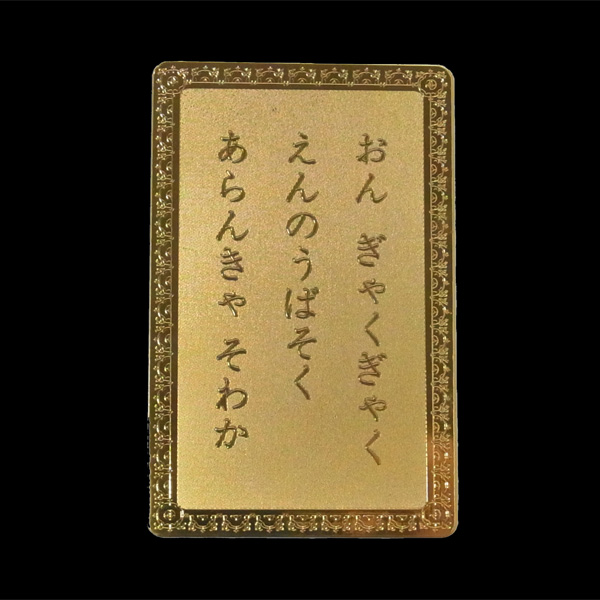 おん ぎゃくぎゃく
えんのうばそく
あらんきゃ そわか